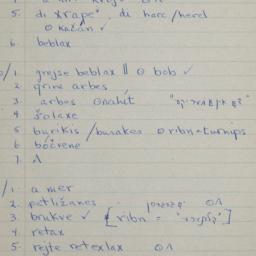 5. di xrape', di harc/herel
⊙ kačán ✓
6. beblax
1. grejse beblax || ⊙ bob ✓
2. grine arbes
3. arbes ⊙nahít
4. šolaxe
5. burikis / burakes ⊙ribn = turnips
6. bóčvene
7. Λ
1. a mer
2. petližanes ⊙Λ
3. brukve ✓ [ribn =
4. retax
5. rejte retexlax ⊙Λ